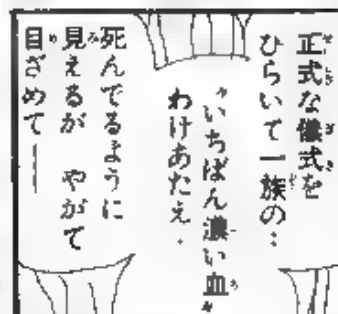 正式な儀式を
ひらいて一族の‥
“いちばん濃い血”
わけあたえ．
死んでるように
見えるが　やがて
目ざめて──